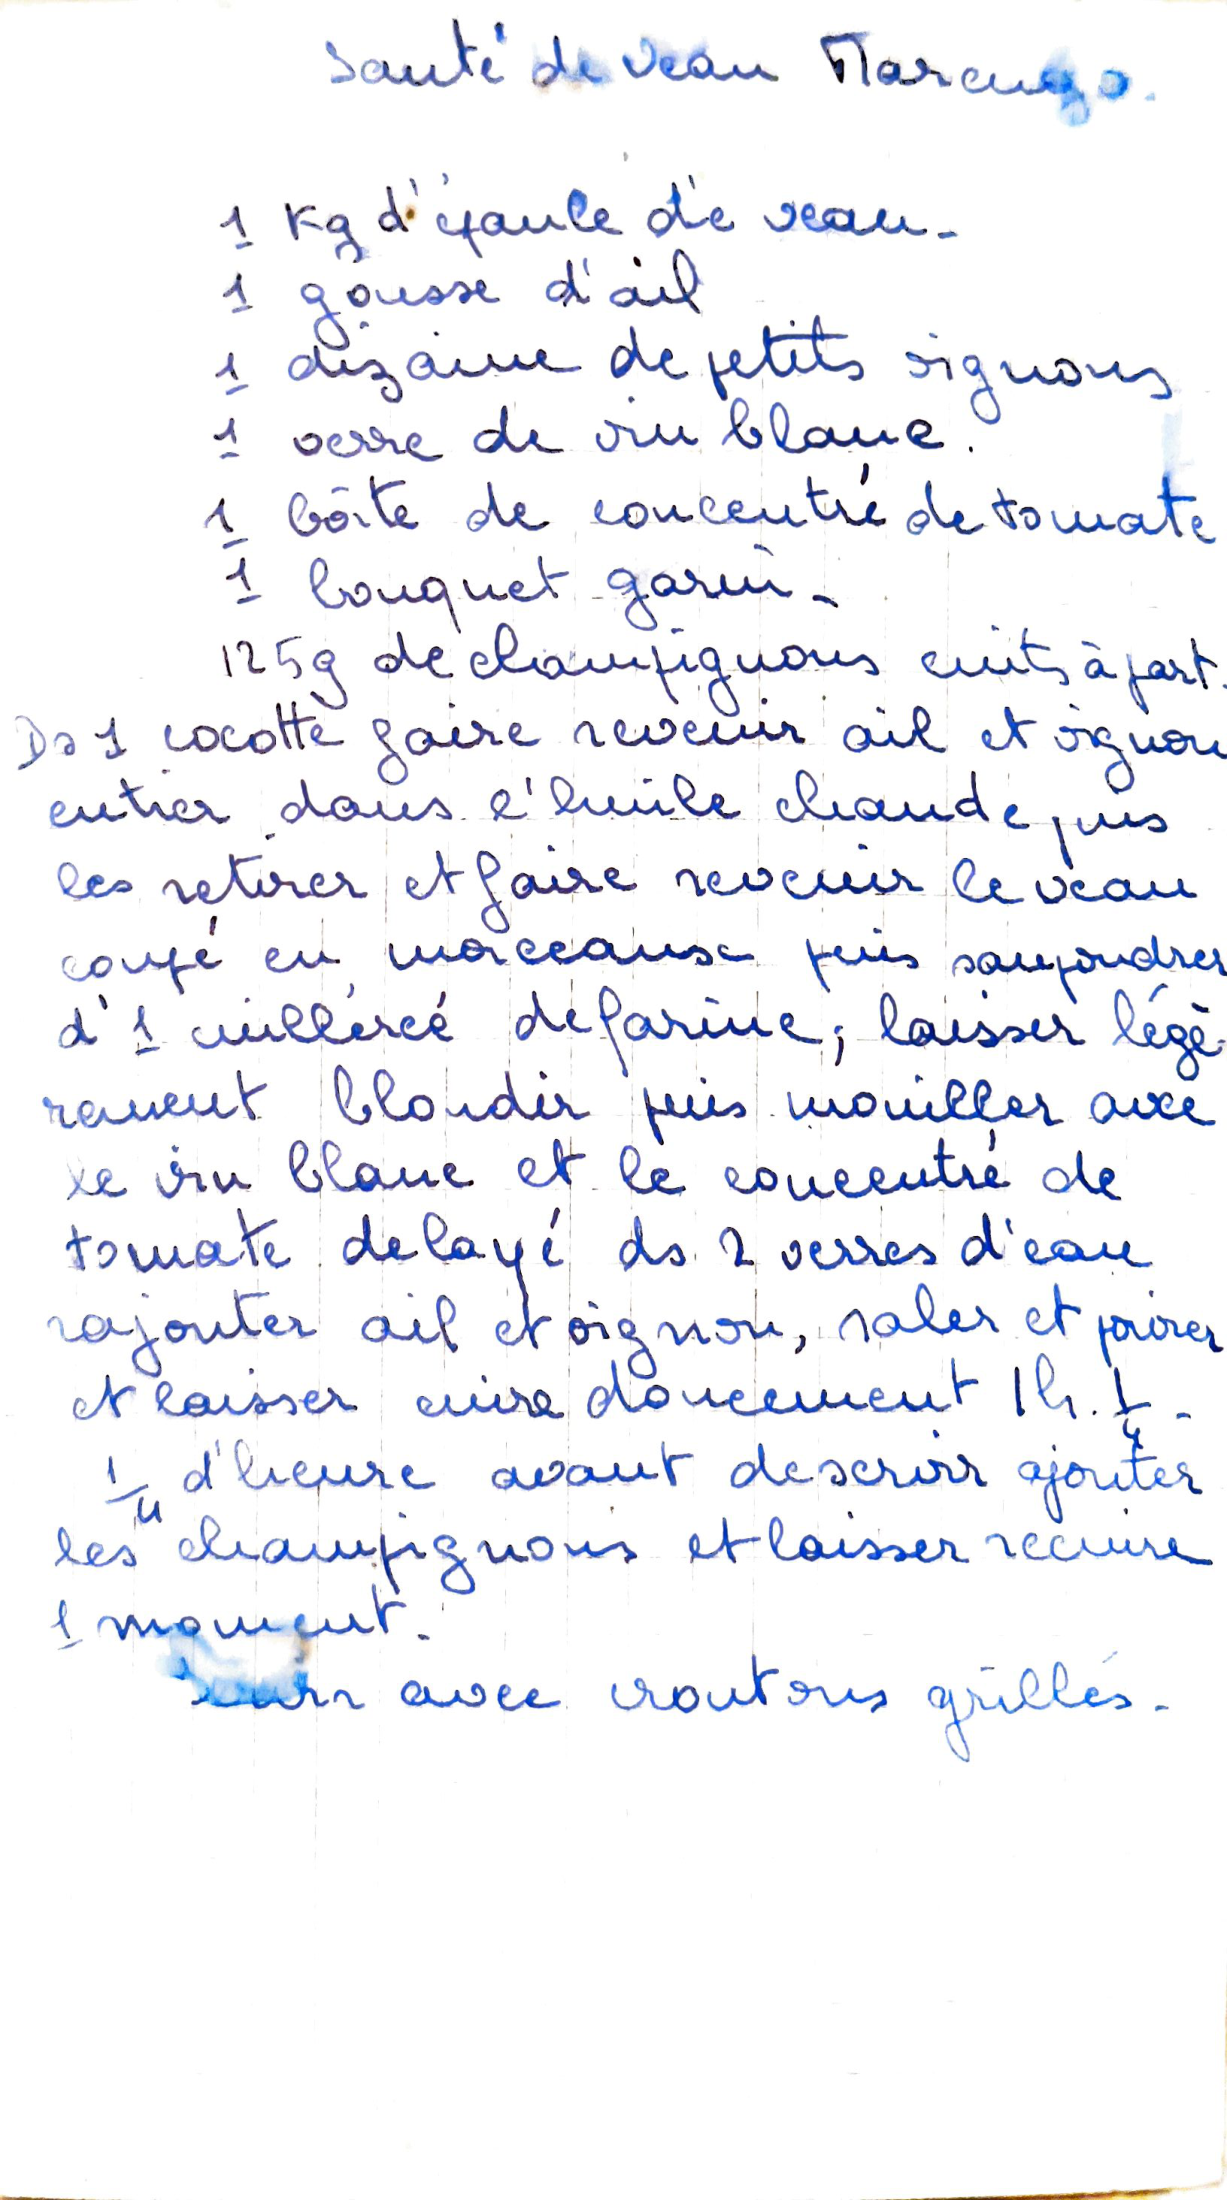 Sauté de veau Marengo.
1 Kg d'épaule de veau -
1 gousse d'ail
1 dizaine de petits oignons
1 verre de vin blanc.
1 boîte de concentré de tomate
1 bouquet garni -
125g de champignons cuits à part.
Ds 1 cocotte faire revenir ail et oignon
entier dans l'huile chaude, puis
les retirer et faire revenir le veau
coupé en morceaux puis saupoudrer
d'1 cuillérée de farine; laisser légè-
rement blondir puis mouiller avec
le vin blanc et le concentré de
tomate delayé ds 2 verres d'eau
rajouter ail et oignon, saler et poivrer
et laisser cuire doucement 1h. 1/4 -
1/4 d'heure avant de servir ajouter
les champignons et laisser recuire
1 moment.
Servir avec croutons grillés -